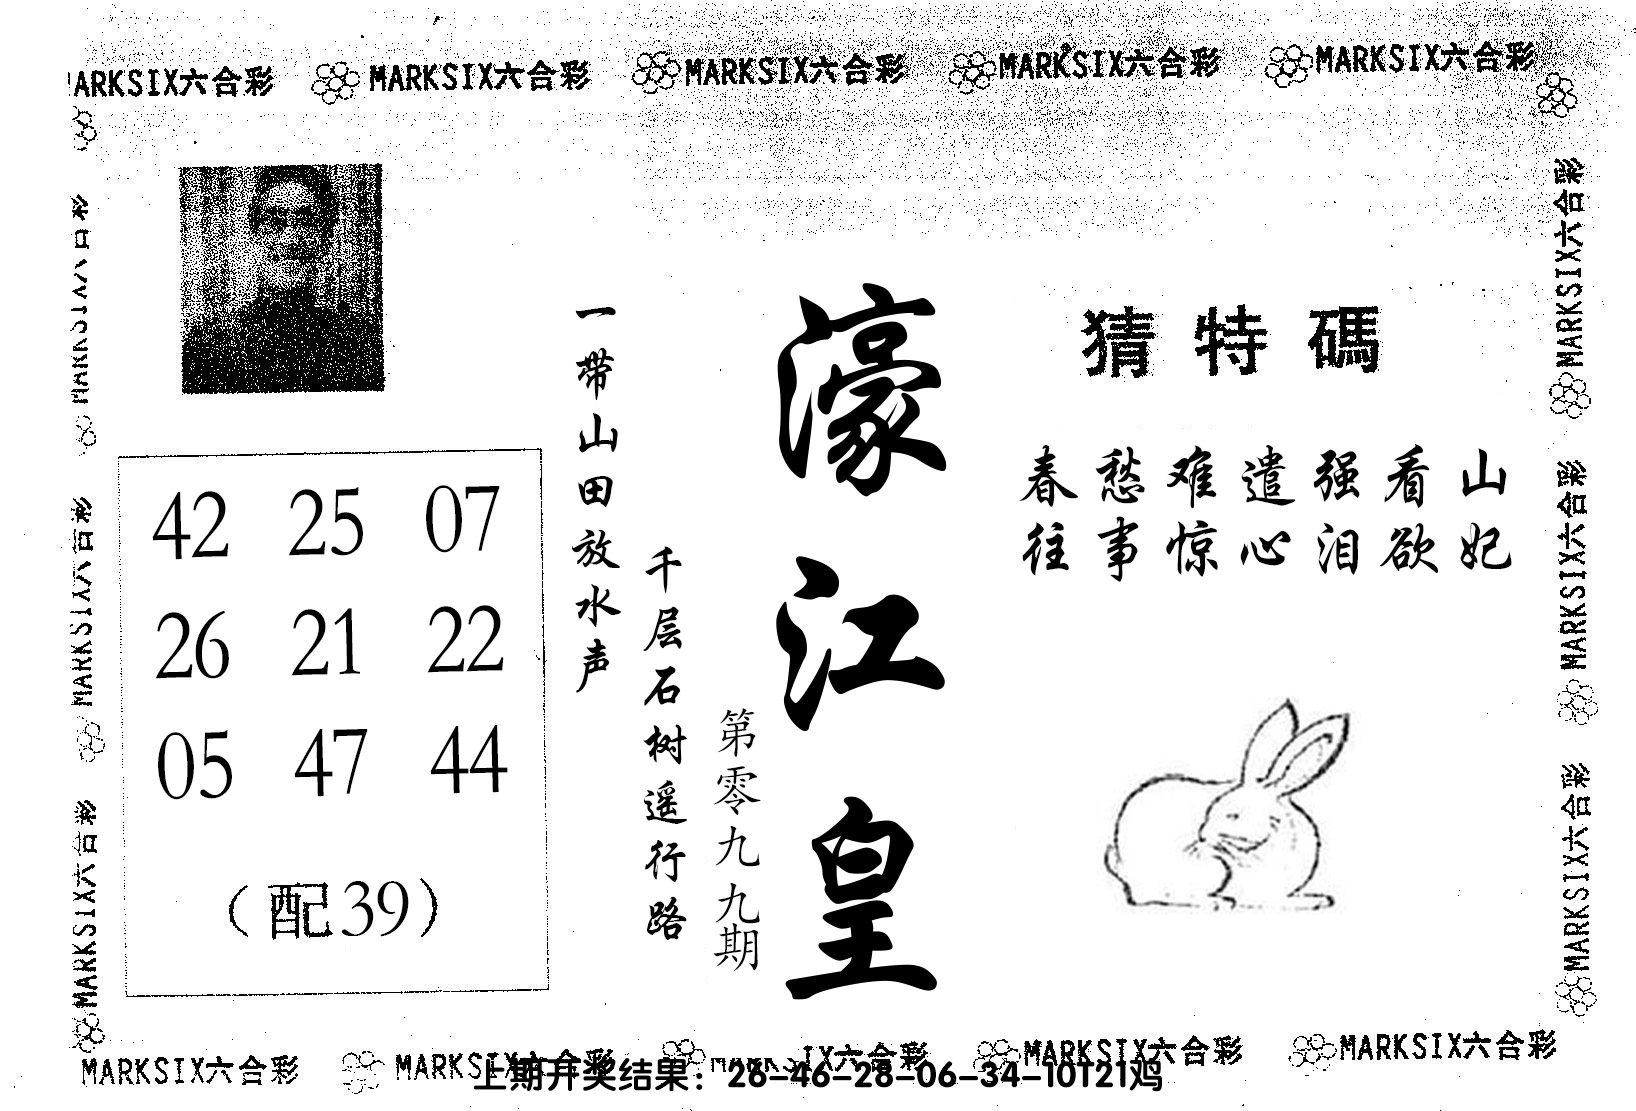 MARKSIX六合彩 MARKSIX六合彩 MARKSIX六合彩 MARKSIX六合彩 MARKSIX六合彩
MARKSIX六合彩
MARKSIX六合彩
MARKSIX六合彩
42 25 07
26 21 22
05 47 44
（配39）
一带山田放水声
千层石树遥行路
第零九九期
濠江皇
猜特碼
春愁难遣强看山
往事惊心泪欲妃
MARKSIX六合彩
MARKSIX六合彩
MARKSIX六合彩
MARKSIX六合彩 MARKSIX六合彩 IX六合彩 MARKSIX六合彩 MARKSIX六合彩
上期开奖结果：26-46-28-06-34-10T21鸡